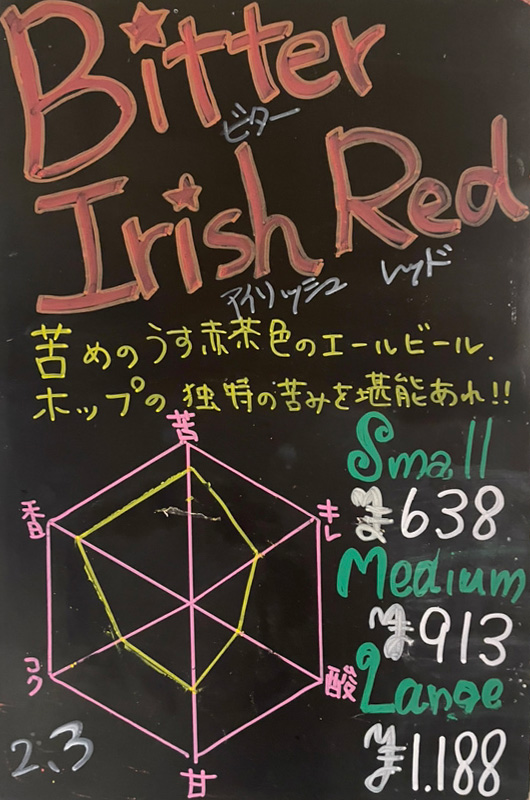 Bitter
ビター
Irish Red
アイリッシュ レッド
苦めのうす赤茶色のエールビール.
ホップの独特の苦みを堪能あれ!!
苦
キレ
酸
甘
コク
香
Small
¥638
Medium
¥913
Large
¥1.188
2.3